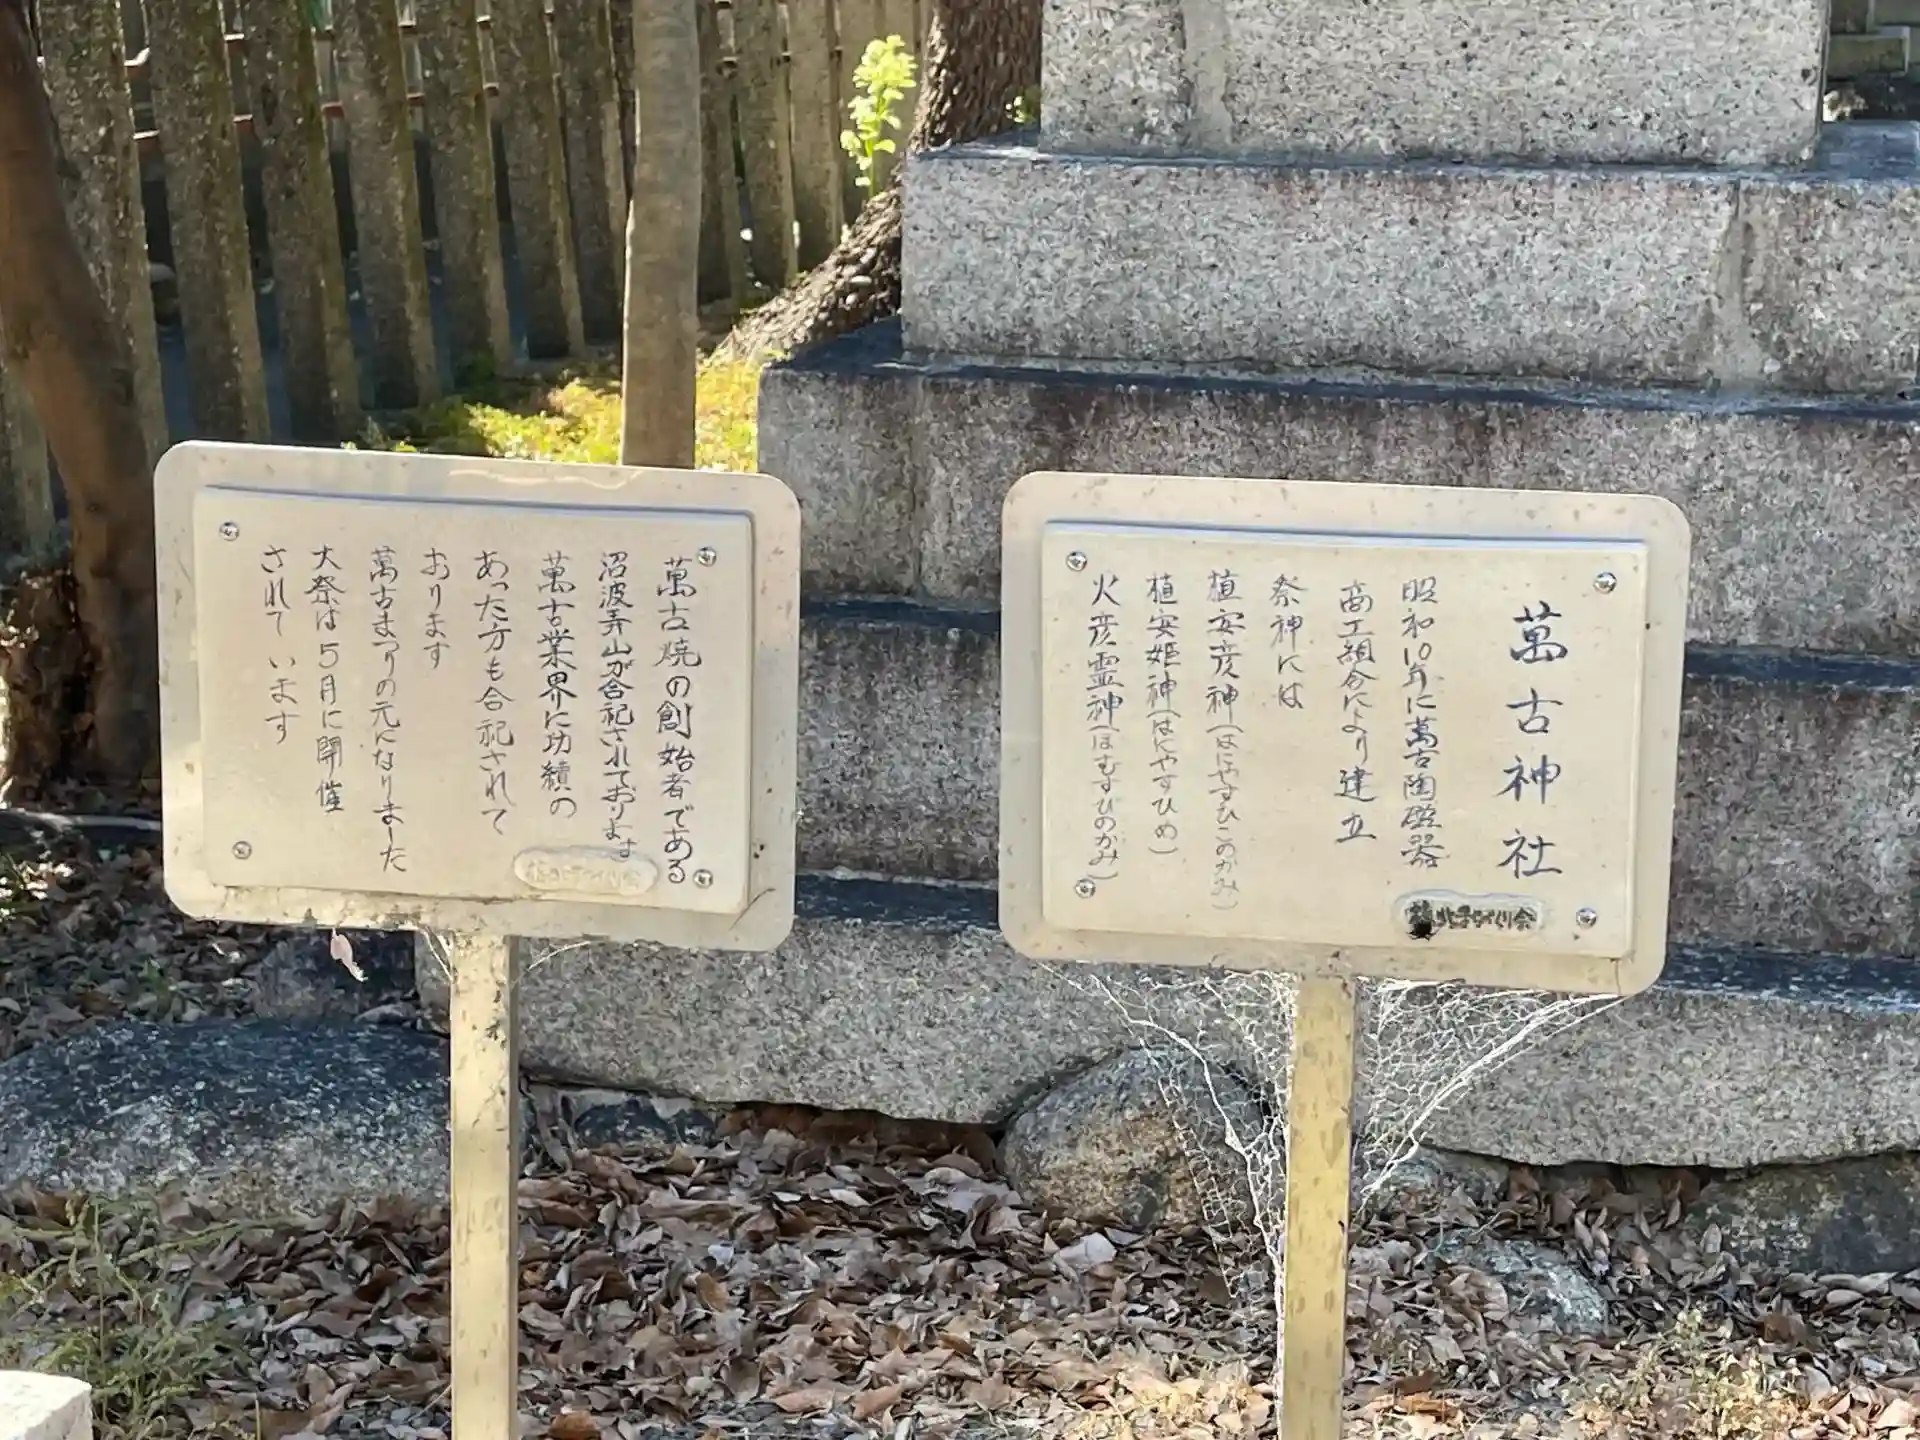 萬古神社
昭和10年に萬古陶磁器
商工組合により建立
祭神には
植安彦神(はにやすひこのかみ)
植安姫神(はにやすひめ)
火彦霊神(ほむすびのかみ)
萬古焼の創始者である
沼波弄山が合祀されております
萬古業界に功績の
あった方も合祀されて
おります
萬古まつりの元になりました
大祭は5月に開催
されています